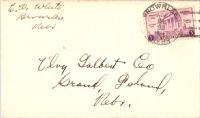 C. W. White
Brownlee
Nebr
BROWNLEE
Elvy Talbert Co
Grand Island,
Nebr.